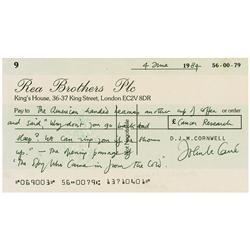 9
4 June 1984 56-00-79
Rea Brothers Plc
King's House, 36-37 King Street, London EC2V 8DR
Pay to The American handed Leamas another cup of coffee or order
and said "Why don't you go back and £ Cancer Research
sleep? We can ring you if he shows D. J. M. CORNWELL
up." — the opening passage of John le Carré
"The Spy Who Came in from the Cold".
⑈069003⑈ 56⑉0079⑆ 13710401⑈